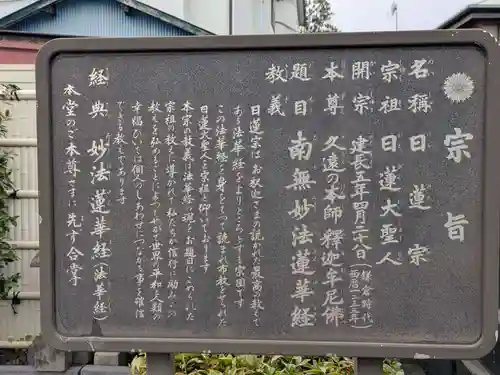 宗旨
名称 日蓮宗
宗祖 日蓮大聖人
開宗 建長五年四月二十八日(鎌倉時代 西暦一二五三年)
本尊 久遠の本師 釈迦牟尼佛
題目 南無妙法蓮華経
教義
日蓮宗はお釈迦さまの説かれた最高の教えで
ある法華経をよりどころとする宗団です
この法華経を身をもって読まれ布教をせられた
日蓮大聖人を宗祖と仰いでおります
本宗の教義は法華経の魂をお題目にこめられた
宗祖の教えに導かれて私たちが信行に励み、この
教えを弘めるとともにあらゆる世界の平和と人類の
幸福ひいては個人のしあわせにつながる事を確信
できる教えであります
経典 妙法蓮華経(法華経)
本堂のご本尊さまに先ず合掌